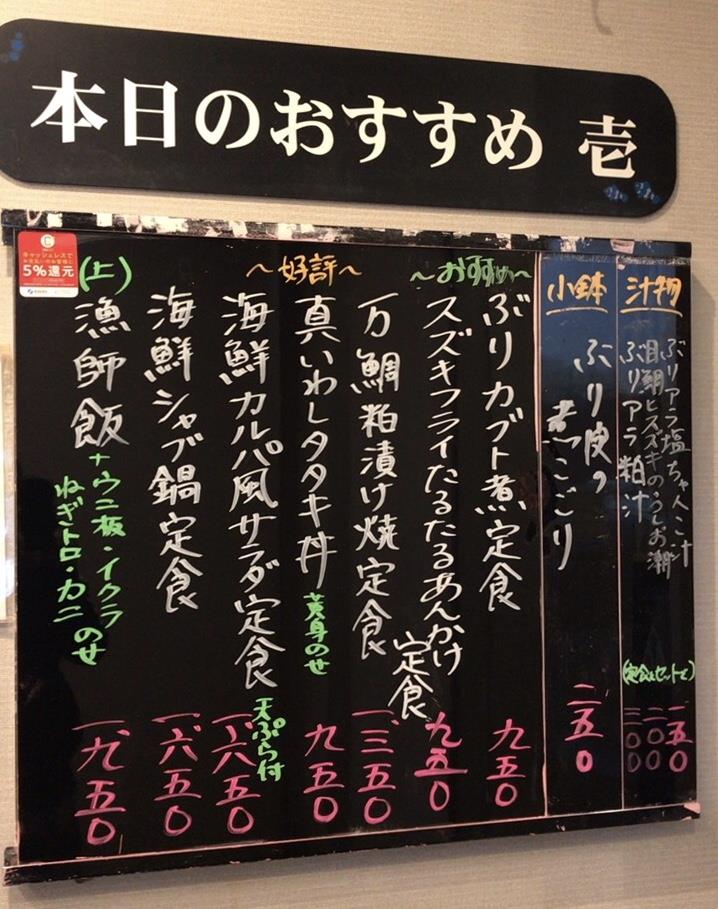 本日のおすすめ 壱
汁物
ぶりアラ塩ちゃんこ汁
目鯛とスズキのうしお潮汁
ぶりアラ粕汁
(定食とセットで)
一五〇
二〇〇
二〇〇
小鉢
ぶり皮の煮こごり
二五〇
～おすすめ～
ぶりカブト煮定食
九五〇
スズキフライたるたるあんかけ定食
九五〇
万鯛粕漬け焼定食
一.三五〇
～好評～
真いわしタタキ丼
黄身のせ
九五〇
海鮮カルパ風サラダ定食
天ぷら付
一.六五〇
海鮮シャブ鍋定食
一.六五〇
(上)
漁師飯
+ウニ板・イクラ
ねぎトロ・カニのせ
一.九五〇
キャッシュレスで
5%還元